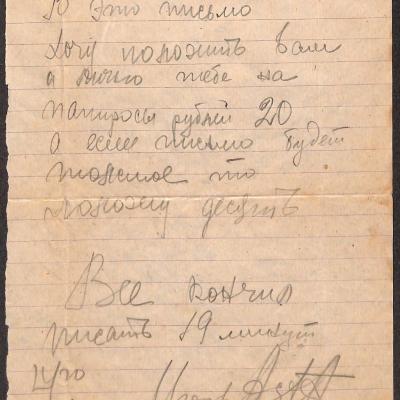 Ю это письмо
Хочу положить вам
а лично тебе на
папиросы рублей 20
а если письмо будет
толстое то
положу десять
Все кончил
писать 19 минут